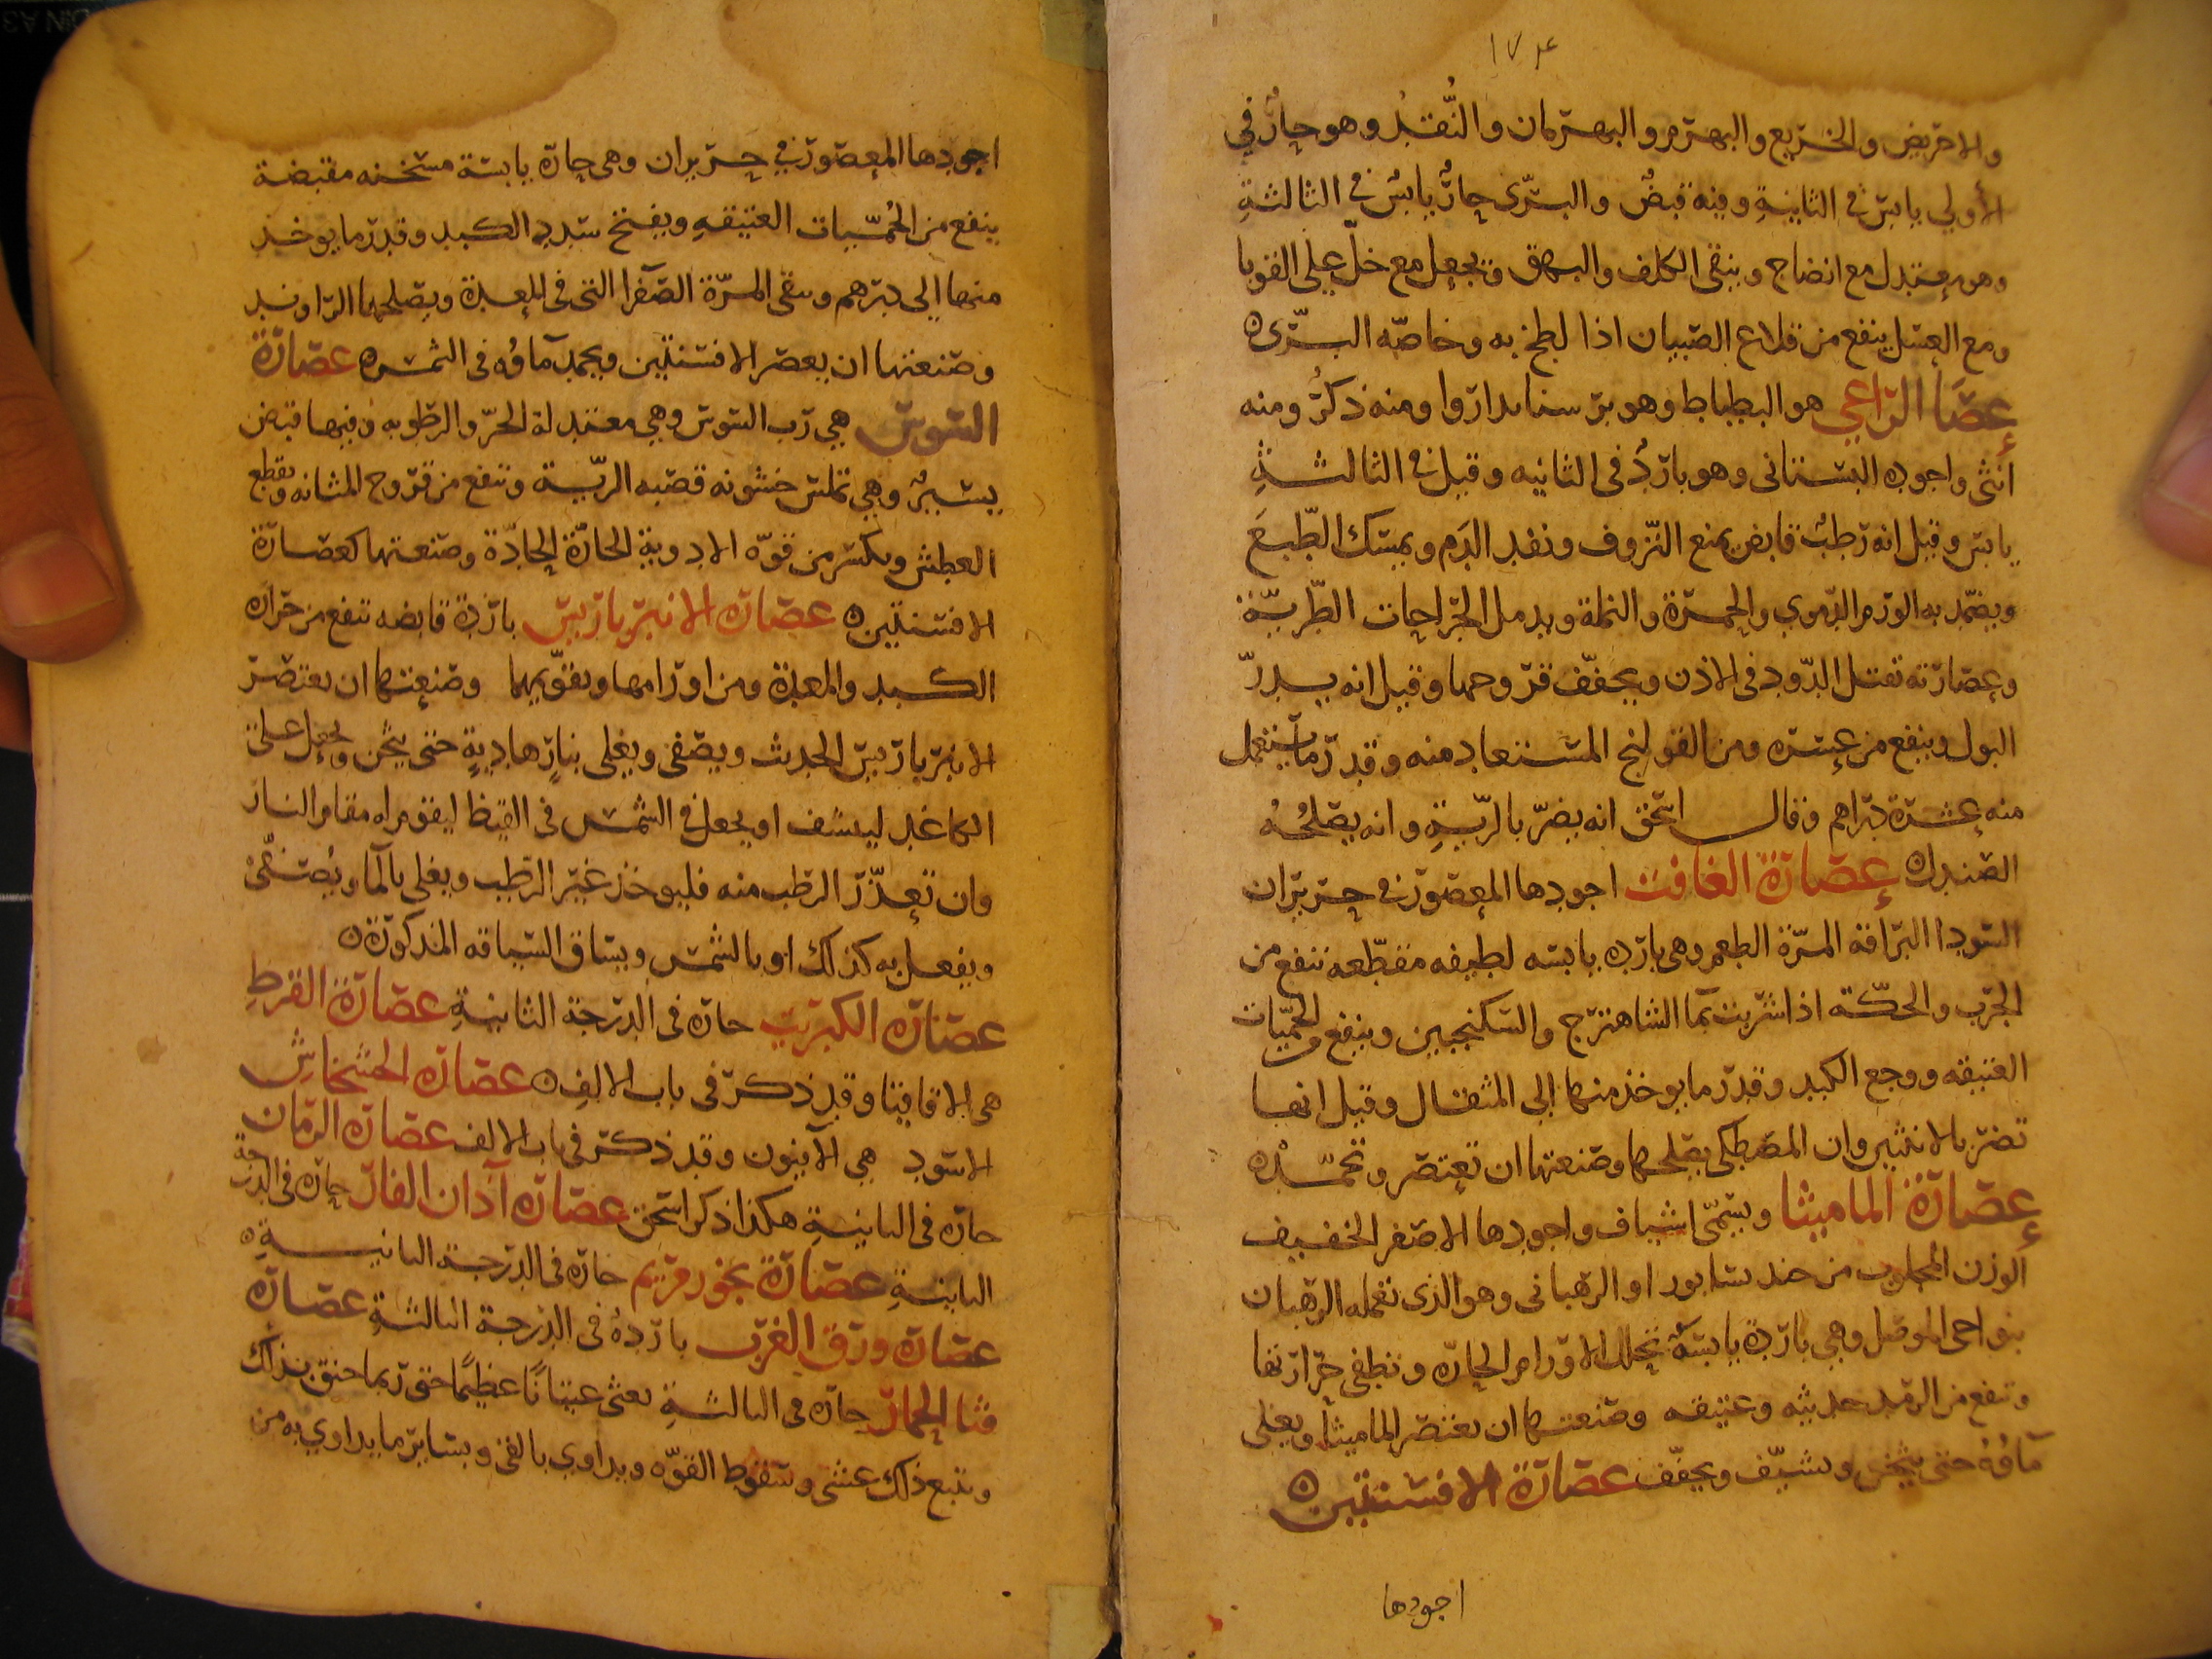 ١٧٤
والاحريض والخريع والبهرم والبهرمان والنُّقد وهو حارٌّ في
الأولى يابس في الثانيةِ وفيه قبضٌ والبرّى حارٌّ يابسٌ في الثالثةِ
وهو معتدل مع انضاج وينقى الكلف والبهق ويجعل مع خلّ على القوبا
ومع العسل ينفع من قلاع الصبيان اذا لطخ به وخاصّه البرّى ه
عصَا الراعي هو البطباط وهو برسنابدارَوا ومنه ذكرٌ ومنه
انثى واجوده البستانى وهو باردٌ فى الثانيه وقيل في الثالثةِ
يابس وقيل انه رَطبٌ قابض يمنع النّزوف ونفث الدَم ويمسك الطّبعَ
ويضمّد به الورم الدموي والحمرة والنملة ويدمل الجراحات الطّريّة
وعصارته تقتل الدّود فى الاذن ويجفّف قروحها وقيل انه يدرّ
البول وينفع من عسره ومن القولنج المستعاد منه وقدر ما يستعمل
منه عشرة دراهم وقال اسحق انه يضرّ بالريّةِ وانه يصلحُهُ
الصندل ه عصارة الغافت اجودها المعصور في حزيران
السودا البراقة المرّة الطعم وهى بارده يابسه لطيفه مقطّعه تنفع من
الجرب والحكّة اذا شربت بما الشاهترج والسكنجبين وينفع والحمّيات
العتيقه ووجع الكبد وقدر ما يوخذ منها الى المثقال وقيل انها
تضر بالانثيين وان المصطكى يصلحها وصنعتها ان تعتصر وتجمّد ه
عصارة الماميثا ويسمّى اشياف واجودها الاصفر الخفيف
الوزن المجلوب من جند يسابور او الرهبانى وهو الذى تعمله الرهبان
بنواحى الموصل وهي باردة يابسة تحلل الاورام الحارّه وتطفى حرارتها
وتنفع من الرمد حديثه وعتيقه وصنعتها ان تعتصر الماميثا ويغلى
مآؤهُ حتى يثخن ويشيّف ويجفّف عصارة الافسنتين ه
اجودها
اجودها المعصور في حزيران وهى حارّه يابسة مسخنه مقبضة
ينفع من الحُمّيات العتيقهِ ويفتح سدد الكبد وقدر ما يوخذ
منها الى درهم وينقى المرّة الصّفرا التى فى المعدة ويصلحها الراوند
وصنعتها ان يعصر الافسنتين ويجمد مآوُه فى الشمس ه عصارة
السوس هي رب السوس وهي معتدلة الحرّ والرطوبه وفيها قبض
يسيرٌ وهي تملس خشونه قصبه الريّة وتنفع من قروح المثانه وتقطع
العطش وتكسر من قوّه الادوية الحارّة الحادّة وصنعتها كعصارة
الافسنتين ه عصاره الانبرباريس باردة قابضه تنفع من حرارة
الكبد والمعدة ومن اورامها ويقوّيهما وصنعتها ان يعتصر
الانبرباريس الحديث ويصفى ويغلى بنارٍ هاديةٍ حتى يثخن ويجعل على
الكاغد لينشف او يجعل فى الشمس فى القيظ ليقوم له مقام النار
وان تعذّر الرطب منه فليوخذ غير الرطب ويغلى بالمآ ويُصفّى
ويفعل به كذلك او بالشمس ويساق السياقه المذكورة ه
عصاره الكبريت حاره فى الدرجة الثانيةِ عصارة القرطِ
هى الاقاقيا وقد ذكر فى باب الالفِ ه عصاره الخشخاشِ
الاسود هي الآفيون وقد ذكر فى باب الالف عصاره الرمان
حارّه فى الثانيةِ هكذا ذكر اسحق عصاره آذان الفار حارّه فى الدرجة
الثانيةِ عصارة بخور مريم حارّه فى الدرجة الثانيةِ ه
عصاره ورق الغرب باردهٌ فى الدرجة الثالثةِ عصاره
قثا الحمار حارّه فى الثالثةِ تغثى غثيانًا عظيمًا حتى ربما خنق بذلك
ويتبع ذلك غشى وسقوط القوّه ويداوي بالقى وبساير ما يداوي به من